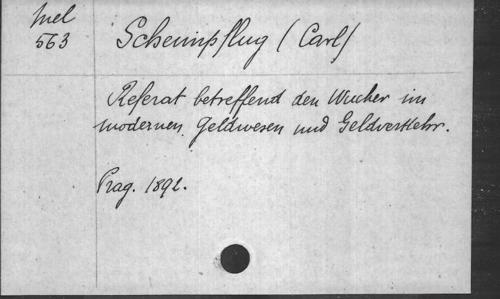 Mel
563
Scheimpflug (Carl)
Referat betreffend den Wucher im
modernen Geldwesen und Geldverkehr.
Prag. 1892.